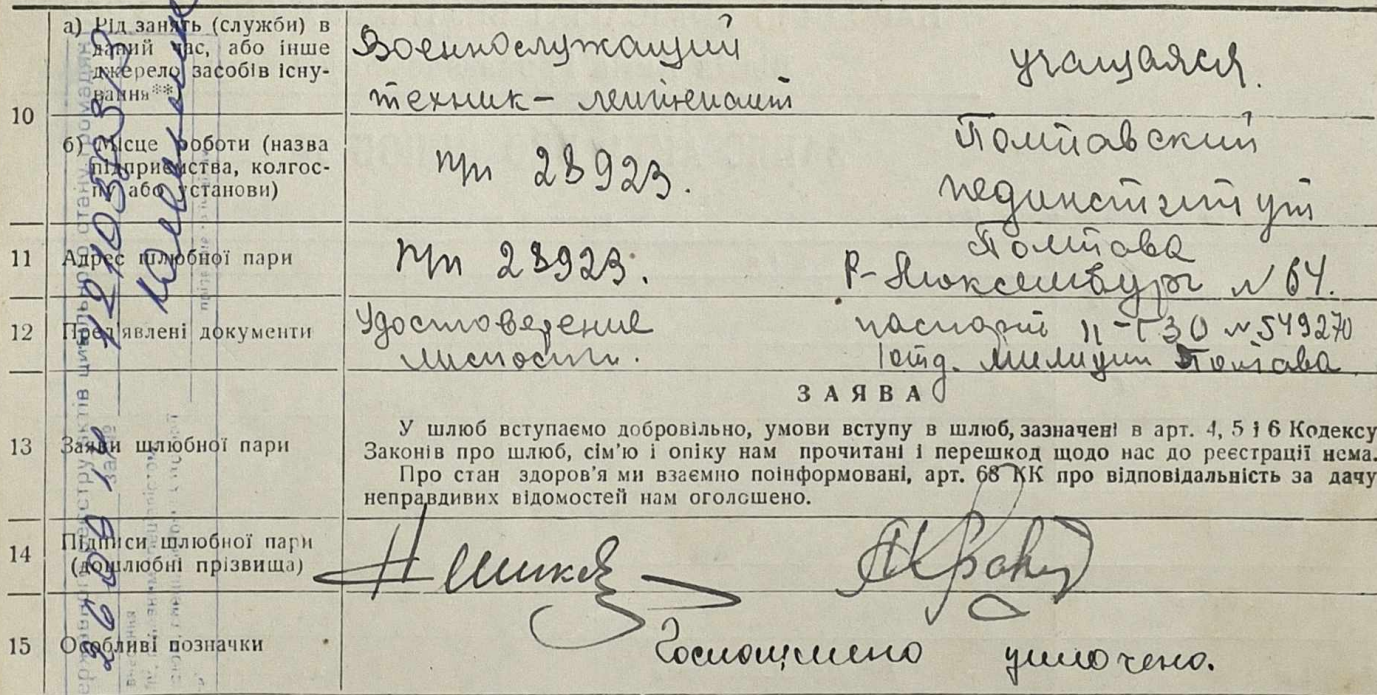 10
а) Рід занять (служби) в даний час, або інше джерело засобів існування**)
Военнослужащий
техник - лейтенант
учащаяся.
б) Місце роботи (назва підприємства, колгоспу або установи)
пп 28923.
Полтавский
пединститут
11 Адрес шлюбної пари
пп 28923.
Полтава
Р-Люксембург № 64.
12 Пред'явлені документи
Удостоверение
личности.
паспорт № 549270
отд. милиции Полтава
ЗАЯВА
13 Заяви шлюбної пари
У шлюб вступаємо добровільно, умови вступу в шлюб, зазначені в арт. 4, 5 і 6 Кодексу
Законів про шлюб, сім'ю і опіку нам прочитані і перешкод щодо нас до реєстрації нема.
Про стан здоров'я ми взаємно поінформовані, арт. 68 КК про відповідальність за дачу
неправдивих відомостей нам оголошено.
14 Підписи шлюбної пари
(дошлюбні прізвища)
15 Особливі позначки
Госпошлина уплочено.